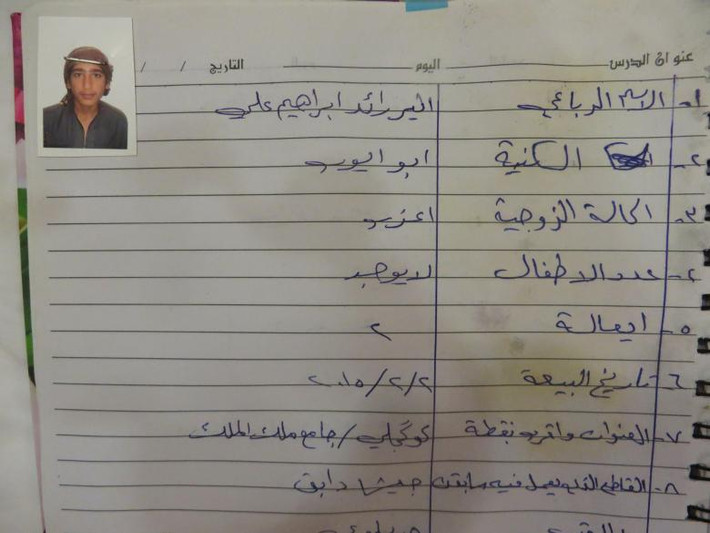 عنوان الدرس اليوم التاريخ / /
١- الاسم الرباعي رائد ابراهيم علي
٢- الكنية ابو ايوب
٣- الحالة الزوجية اعزب
٤- عدد الاطفال لا يوجد
٥- ايعالة ٢
٦- تاريخ البيعة ٢/٢/٢٠١٥
٧- العنوان واقرب نقطة كوكجلي/جامع ملك الملك
٨- القاطع الذي يعمل فيه سابقا جيش دابق